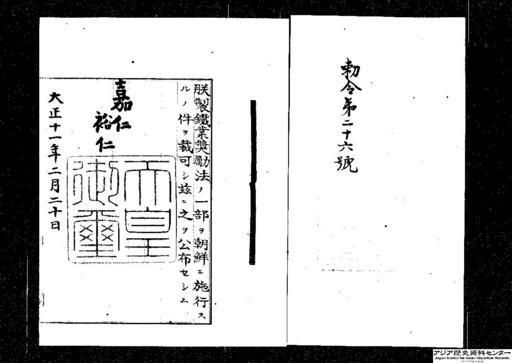 勅令第二十六號
朕製鐵業奬勵法ノ一部ヲ朝鮮ニ施行ス
ルノ件ヲ裁可シ玆ニ之ヲ公布セシム
嘉仁
裕仁
天皇
御璽
大正十一年二月二十日
アジア歴史資料センター
Japan Center for Asian Historical Records